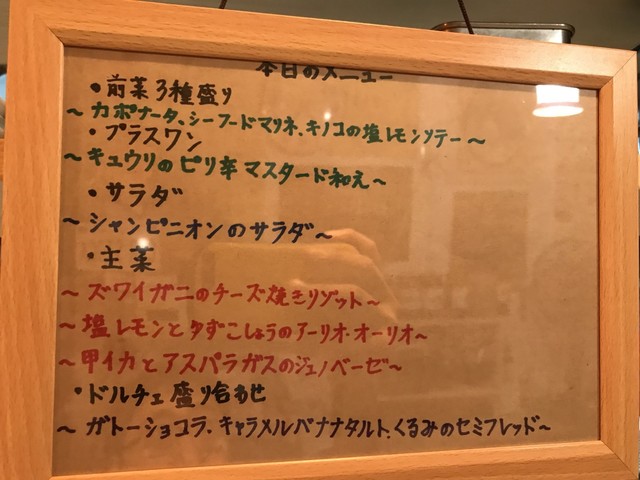 本日のメニュー
・前菜3種盛り
～カポナータ、シーフードマリネ、キノコの塩レモンソテー～
・プラスワン
～キュウリのピリ辛マスタード和え～
・サラダ
～シャンピニオンのサラダ～
・主菜
～ズワイガニのチーズ焼きリゾット～
～塩レモンとゆずこしょうのアーリオ・オーリオ～
～甲イカとアスパラガスのジェノベーゼ～
・ドルチェ盛り合わせ
～ガトーショコラ、キャラメルバナナタルト、くるみのセミフレッド～